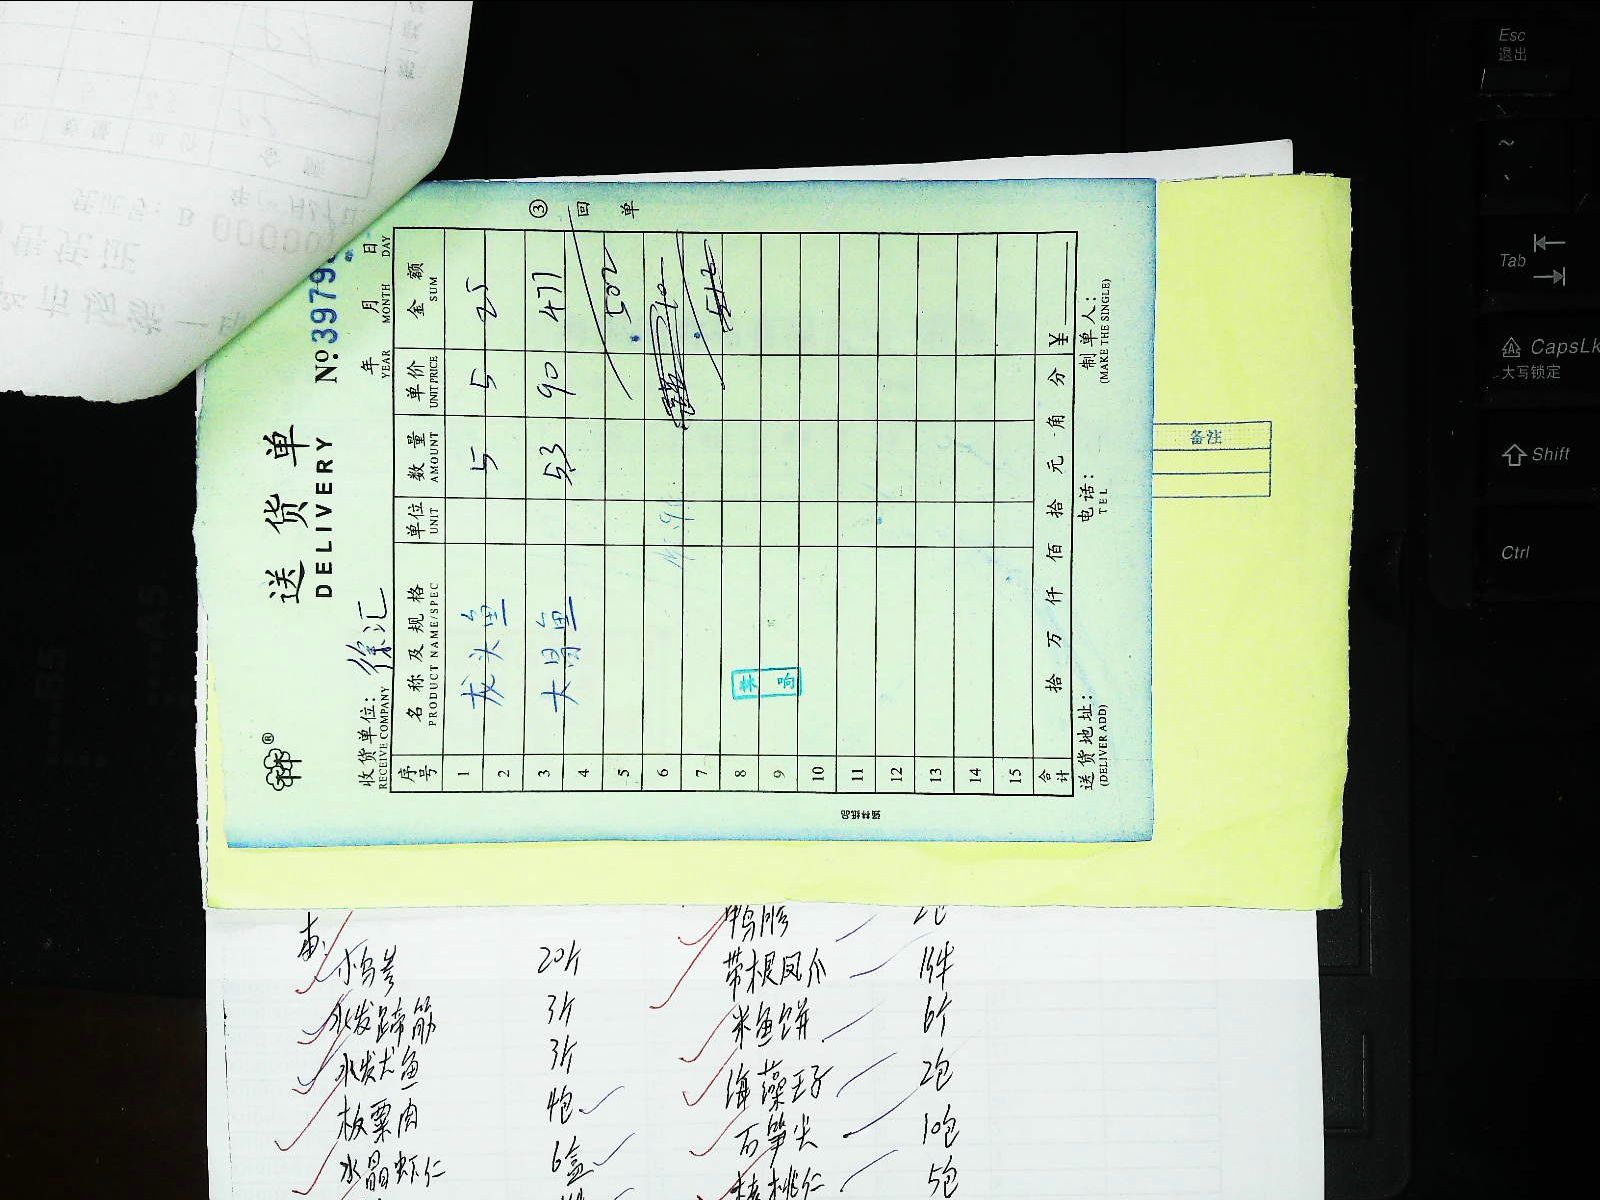 送货单
DELIVERY
No:3979
收货单位: 徐汇
RECEIVE COMPANY
年 月 日
YEAR MONTH DAY
序号 名称及规格 单位 数量 单价 金额
PRODUCT NAME/SPEC UNIT AMOUNT UNIT PRICE SUM
1 龙头鱼 5 5 25
2
3 大昌鱼 53 90 477
4
5 502
6
7 512
8
9
10
11
12
13
14
15
合计 拾 万 仟 佰 拾 元 角 分 ¥
送货地址: 电话: 制单人:
(DELIVER ADD) TEL (MAKE THE SINGLE)
③ 回单
备注
小乌参 20斤
水发蹄筋 3斤
水发尤鱼 3斤
板栗肉 4包
水晶虾仁 6盒
鸭胗 2包
带根凤爪 1件
米鱼饼 6斤
海藻王子 2包
石笋尖 10包
核桃仁 5包
Esc
退出
~
Tab
CapsLk
大写锁定
Shift
Ctrl